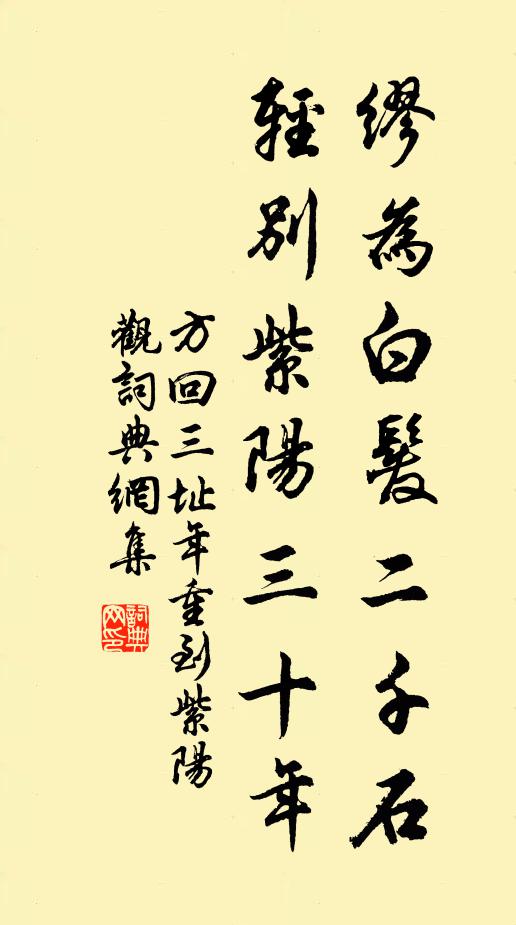 繆為白髮二千石
輕別紫陽三十年
方回三址年重到紫陽
觀詞典網集
詞典网印